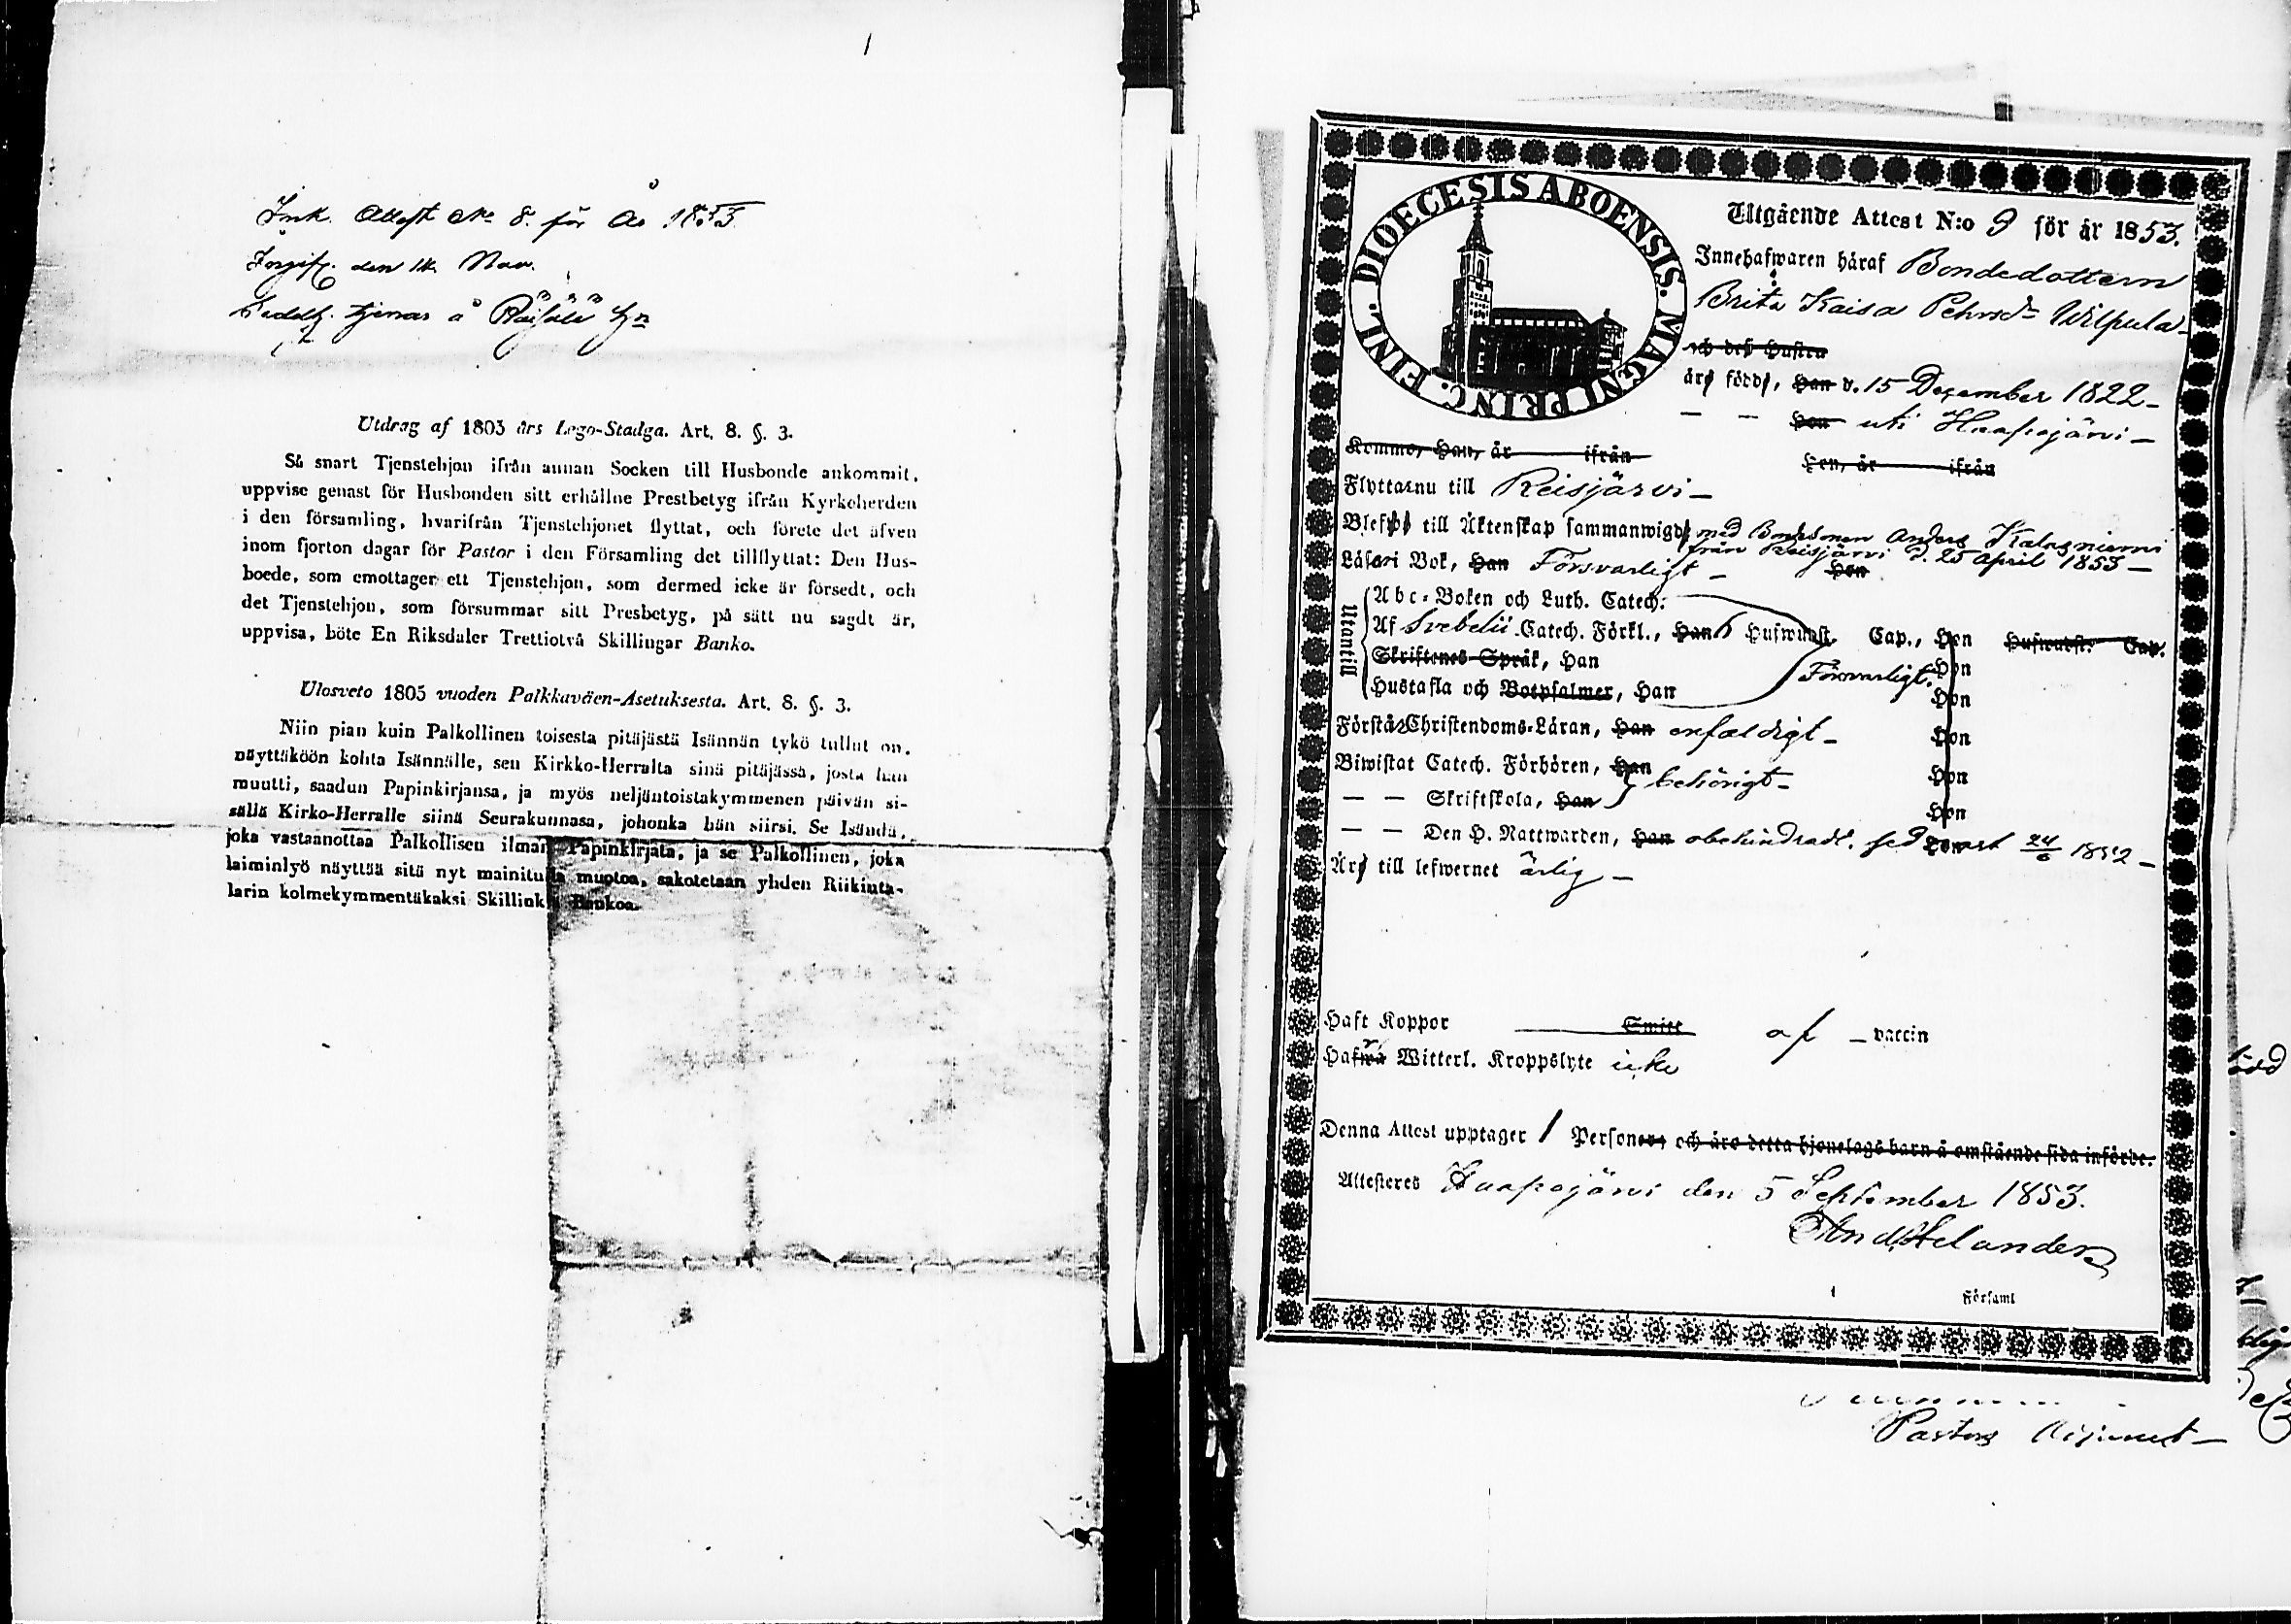 1
Ink. Attest No 8. för År 1853
den 14 Nov.
tjenar å
Utdrag af 1805 års Lego-Stadga. Art. 8. §. 3.
Så snart Tjenstehjon ifrån annan Socken till Husbonde ankommit,
uppvise genast för Husbonden sitt erhållne Prestbetyg ifrån Kyrkoherden
i den församling, hvarifrån Tjenstehjonet flyttat, och förete det äfven
inom fjorton dagar för Pastor i den Församling det tillflyttat: Den Hus-
boede, som emottager ett Tjenstehjon, som dermed icke är försedt, och
det Tjenstehjon, som försummar sitt Presbetyg, på sätt nu sagdt är,
uppvisa, böte En Riksdaler Trettiotvå Skillingar Banko.
Ulosveto 1805 vuoden Palkkaväen-Asetuksesta. Art. 8. §. 3.
Niin pian kuin Palkollinen toisesta pitäjästä Isännän tykö tullut on,
näyttäköön kohta Isännälle, sen Kirkko-Herralta sinä pitäjässä, josta hän
muutti, saadun Papinkirjansa, ja myös neljäntoistakymmenen päivän si-
sällä Kirko-Herralle siinä Seurakunnasa, johonka hän siirsi. Se Isändä,
joka vastaanottaa Palkollisen ilman Papinkirjata, ja se Palkollinen, joka
laiminlyö näyttää sitä nyt mainitulla muotoa, sakotetaan yhden Riikinta-
larin kolmekymmentäkaksi Skillinkiä Bankoa.
DIOECESIS ABOENSIS. MAGNI PRINC. FINL.
Utgående Attest N:o 9 för år 1853.
Innehafwaren häraf Bondedottern
Brita Kaisa Pehrsdr Wilpula
och deß Hustru
äro född, Han d. 15 December 1822
— — Hon uti Haapajärvi
Kommo, Han, år ifrån Hon, år ifrån
Flyttar nu till Reisjärvi
Blefwo till Äktenskap sammanwigde med Bondsonen Anders Kalagniemi
från Reisjärvi d. 25 April 1853
Läser i Bok, Han Försvarligt Hon
Utantill
Abc-Boken och Luth. Catech.
Af Svebelii Catech. Förkl., Han Hufwudst. Cap., Hon Hufwudst. Cap.
Skriftenes Språk, Han Försvarligt. Hon
Hustafla och Botpsalmer, Han Hon
Förstår Christendoms-Läran, Han enfaldigt Hon
Biwistat Catech. Förhören, Han behörigt Hon
— — Skriftskola, Han Hon
— — Den H. Nattwarden, Han obehindradt. sednast 24/6 1852
Äro till lefwernet ärlig
Haft Koppor Smitt af vaccin
Hafwa Witterl. Kroppslyte icke
Denna Attest upptager 1 Personer, och äro detta hjonelags barn å omstående sida införde.
Attesteres Haapajärvi den 5 September 1853.
And. Helander
Församl
Pastors